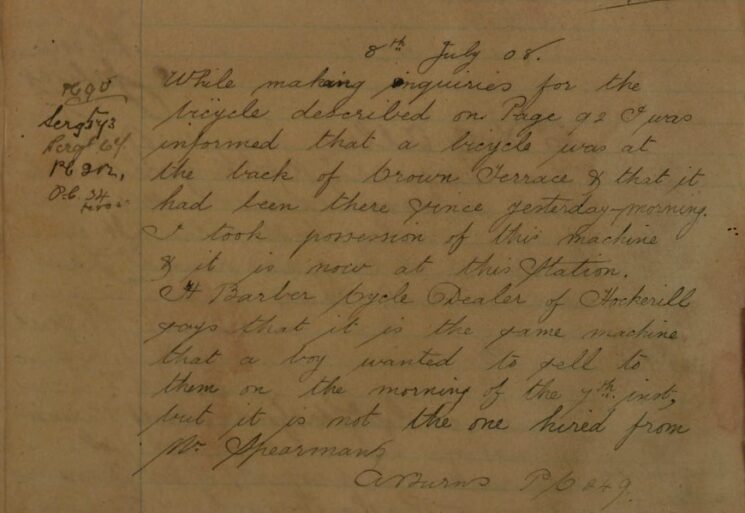 8th July 08.
While making inquiries for the
bicycle described on Page 92 I was
informed that a bicycle was at
the back of Crown Terrace & that it
had been there since yesterday morning.
I took possession of this machine
& it is now at this Station.
H Barber Cycle Dealer of Hockerill
says that it is the same machine
that a boy wanted to sell to
them on the morning of the 7th inst,
but it is not the one hired from
Mr Spearmans
A Burns P C 249.
Sergt
Sergt
PC 202,
P.C 34